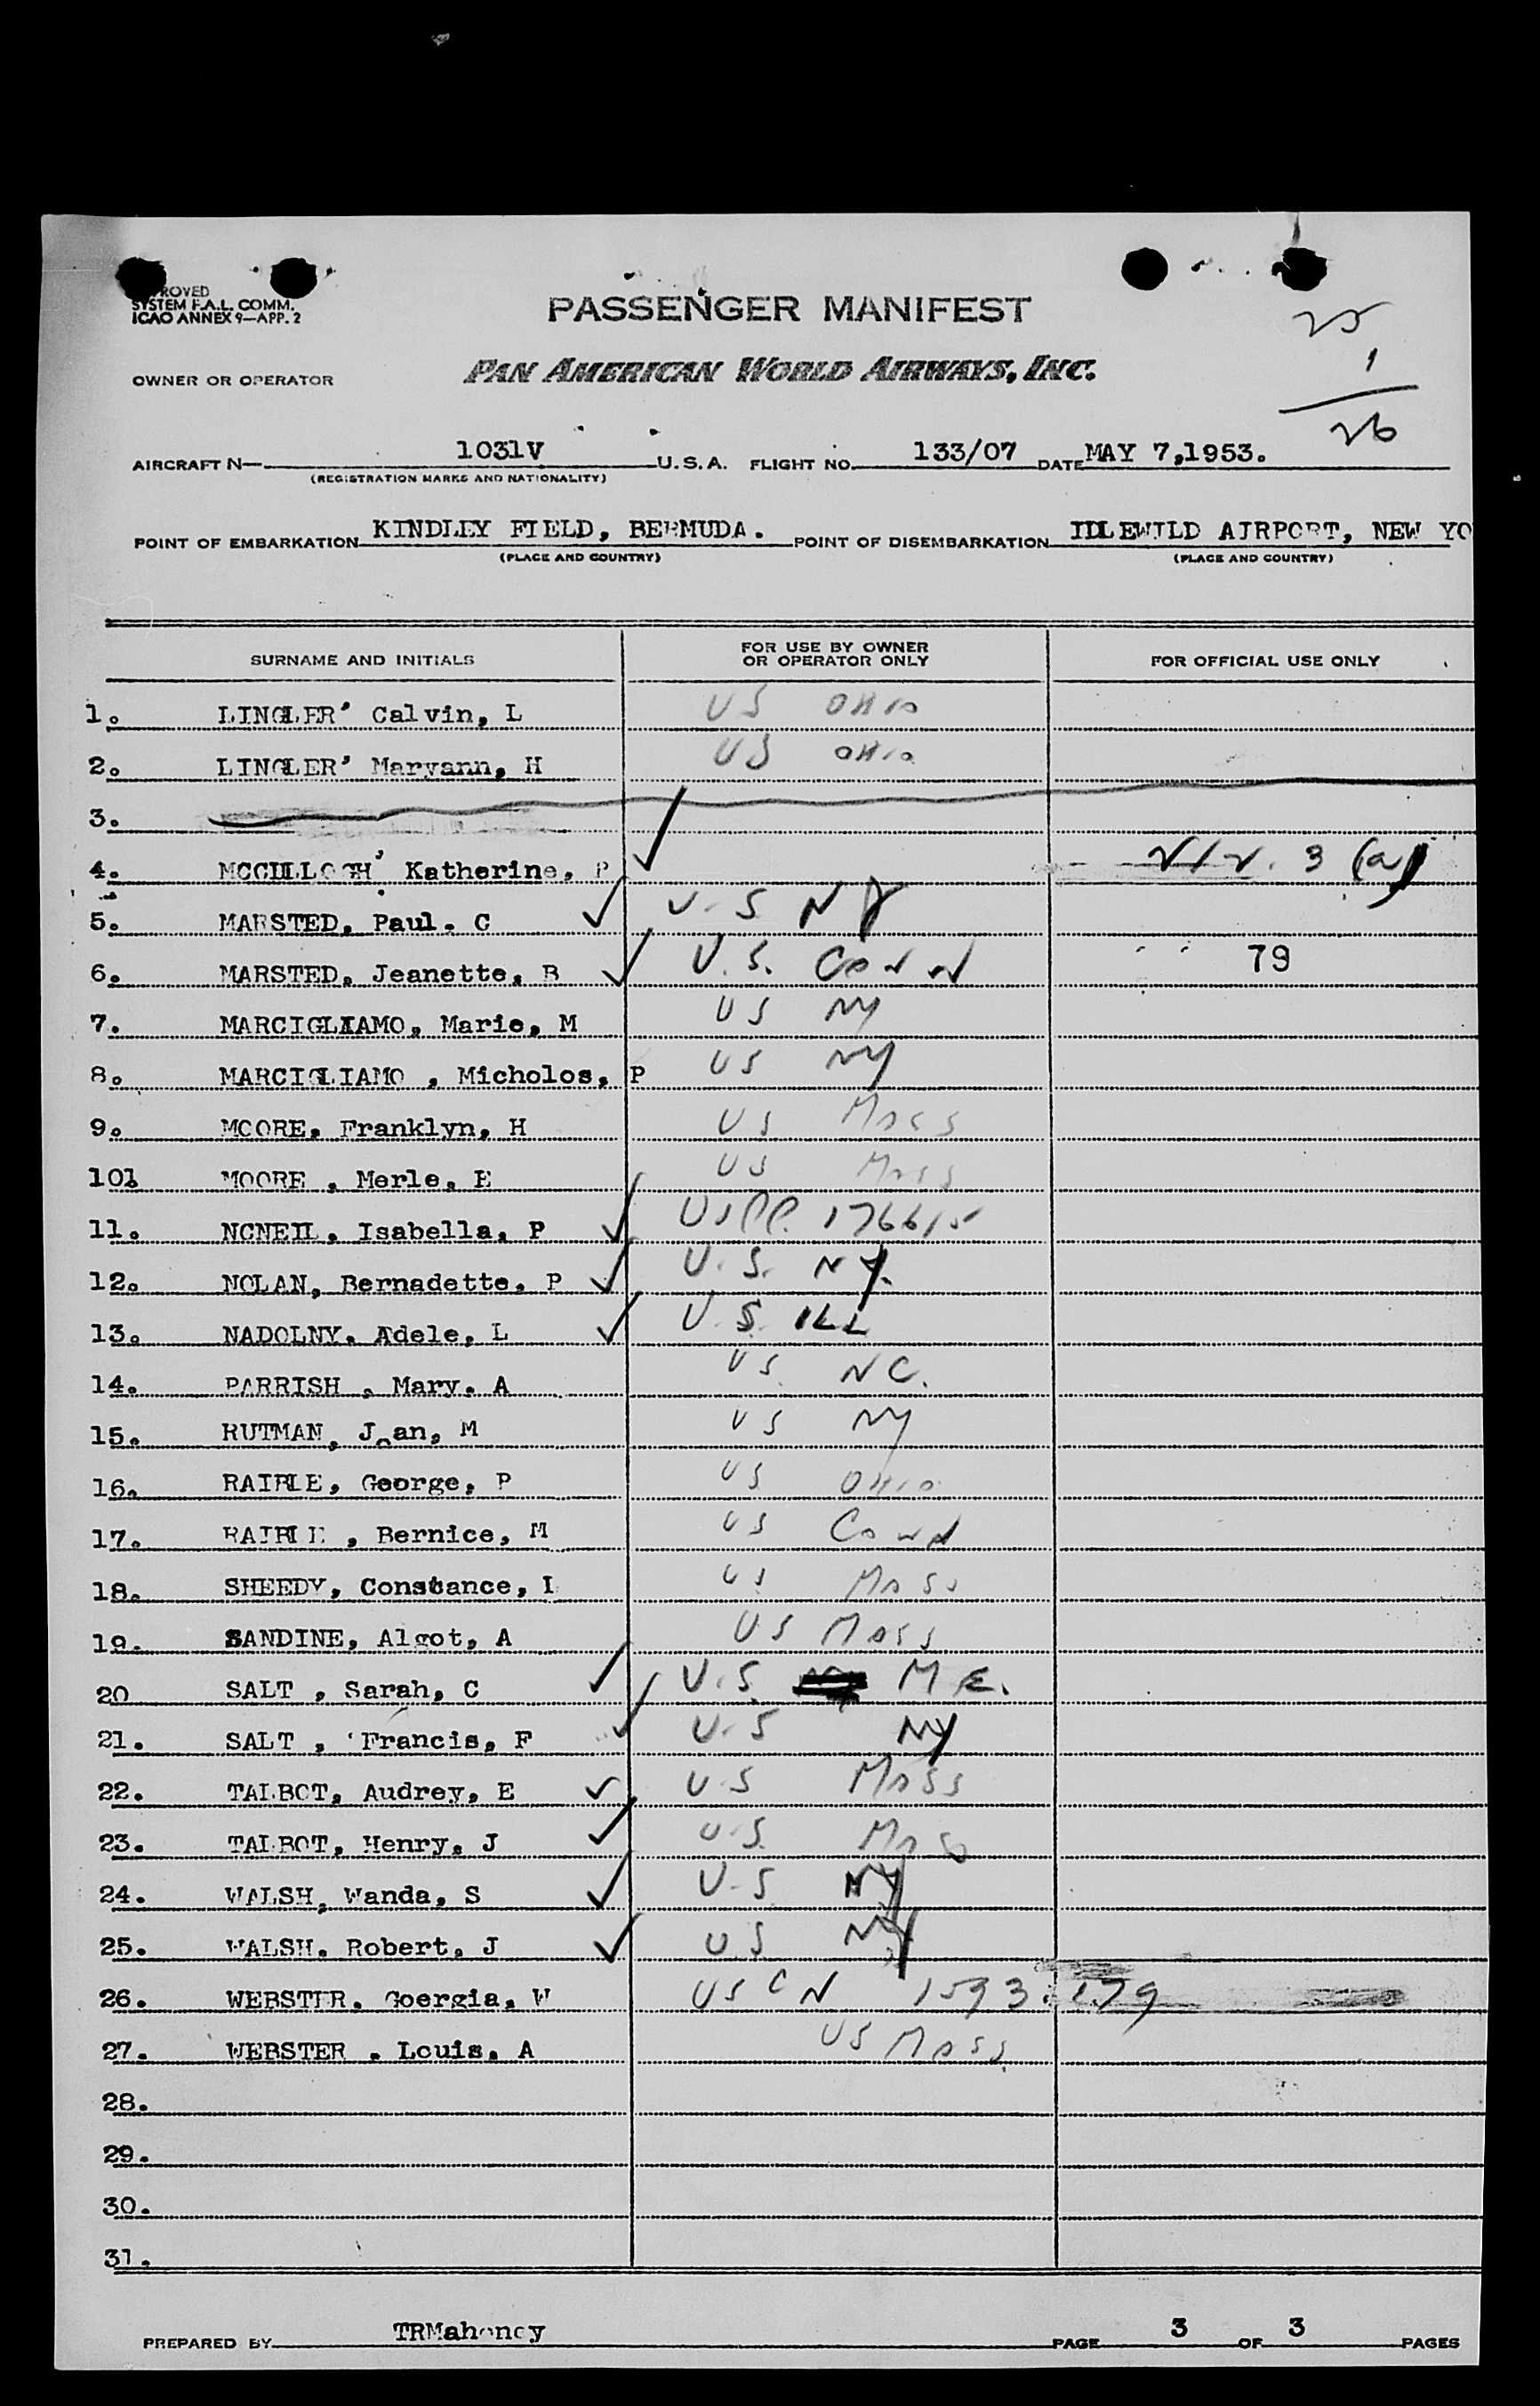 PROVED
SYSTEM F.A.L. COMM.
ICAO ANNEX 9—APP. 2
PASSENGER MANIFEST
25
1
26
OWNER OR OPERATOR PAN AMERICAN WORLD AIRWAYS, INC.
AIRCRAFT N— 1031V U.S.A. FLIGHT NO. 133/07 DATE MAY 7,1953.
(REGISTRATION MARKS AND NATIONALITY)
POINT OF EMBARKATION KINDLEY FIELD, BERMUDA. POINT OF DISEMBARKATION IDLEWILD AIRPORT, NEW YO
(PLACE AND COUNTRY) (PLACE AND COUNTRY)
SURNAME AND INITIALS FOR USE BY OWNER OR OPERATOR ONLY FOR OFFICIAL USE ONLY
1. LINGLER' Calvin, L US OHIO
2. LINGLER' Maryann, H US OHIO
3.
4. Katherine, P ✓ 3 (a)
5. MARSTED, Paul. C ✓ U.S NY
6. MARSTED, Jeanette, B ✓ U.S. CONN 79
7. MARCIGLIAMO, Marie, M US NY
8. MARCIGLIAMO , Micholos, P US NY
9. MOORE, Franklyn, H US MASS
10. MOORE , Merle, E US MASS
11. NCNEIL, Isabella, P ✓ USPP. 176615
12. NOLAN, Bernadette, P ✓ U.S. NY.
13. NADOLNY, Adele, L ✓ U.S. ILL
14. PARRISH , Mary. A US NC.
15. RUTMAN, Joan, M US NY
16. George, P US OHIO
17. , Bernice, M US CONN
18. SHEEDY, Constance, L US MASS
19. SANDINE, Algot, A US MASS
20 SALT , Sarah, C ✓ U.S. ME.
21. SALT , Francis, F ✓ U.S NY
22. TALBOT, Audrey, E ✓ U.S MASS
23. TALBOT, Henry, J ✓ U.S. MASS
24. WALSH, Wanda, S ✓ U.S NY
25. WALSH, Robert, J ✓ U.S NY
26. WEBSTER, Goergia, W US CN 1593179
27. WEBSTER , Louis, A US MASS
28.
29.
30.
31.
PREPARED BY TRMahoney PAGE 3 OF 3 PAGES